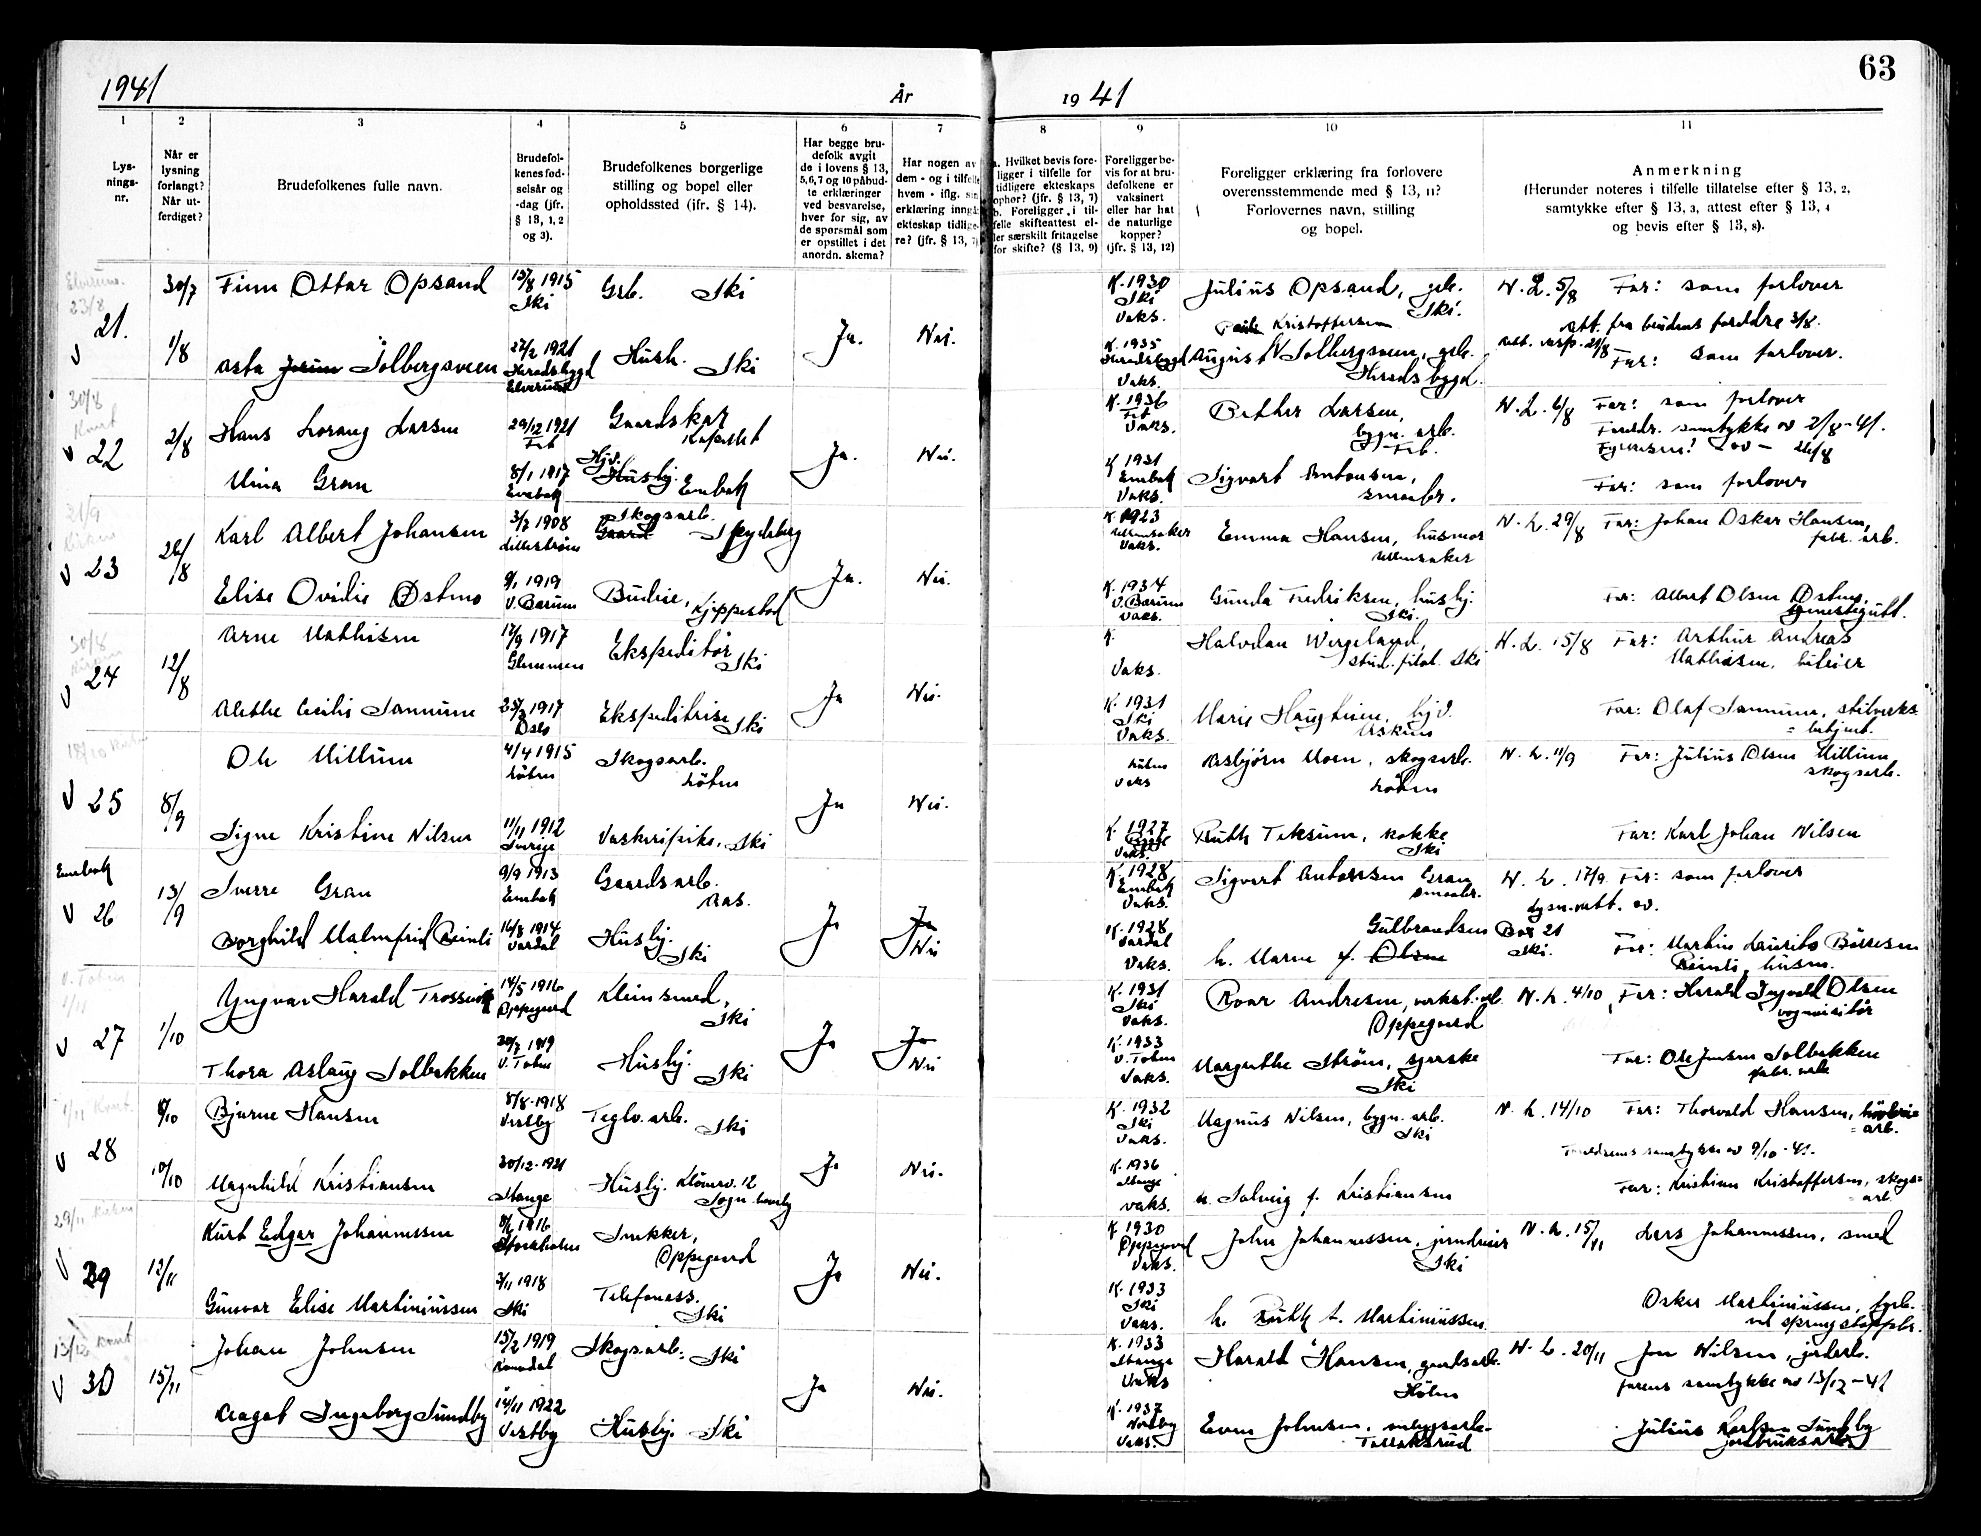 1941 År 1941 63
1 2 3 4 5 6 7 8 9 10 11
Lys-
nings-
nr.
Når er
lysning
forlangt?
Når ut-
ferdiget?
Brudefolkenes fulle navn.
Brudefol-
kenes fød-
selsår og
-dag (jfr.
§ 13, 1, 2
og 3).
Brudefolkenes borgerlige
stilling og bopel eller
opholdssted (ifr. § 14).
Har begge bru-
defolk avgit
de i lovens § 13,
5,6,7 og 10 påbud-
te erklæringer
ved besvarelse,
hver for sig, av
de spørsmål som
er opstillet i det
anordn. skema?
Har nogen av
dem - og i tilfelle
hvem - iflg. sin
erklæring inngå
ekteskap tidlige-
re? (jfr. § 13, 7)
a. Hvilket bevis fore-
ligger i tilfelle for
tidligere ekteskaps
ophør? (jfr. § 13, 7)
b. Foreligger i til-
felle skifteattest el-
ler særskilt fritagelse
for skifte? (§ 13, 9)
Foreligger be-
vis for at bru-
defolkene er
vaksinert
eller har hat
de naturlige
kopper?
(jfr. § 13, 12)
Foreligger erklæring fra forlovere
overensstemmende med § 13, 11?
Forlovernes navn, stilling
og bopel.
Anmerkning
(Herunder noteres i tilfelle tillatelse efter § 13, 2,
samtykke efter § 13, 3, attest efter § 13, 4
og bevis efter § 13, 8).
21. 30/7 Finn Ottar Opsand 13/8 1915 Ski Grb. Ski K. 1930 Ski Vaks. Julius Opsand, grb. Ski. N. L. 5/8 Far: som forlover
Kristoffersen att. fra brudens foreldre 3/8.
1/8 Asta Jorun Solbergsveen 27/2 1921 Heradsbygd Elverum Hush. Ski Ja. Nei. K. 1935 Heradsbygd Vaks. August Solbergsveen, grb. Heradsbygd. Far: som forlover.
22 2/8 Hans Lorang Larsen 29/12 1921 Fet Gaardskar Ja. Nei. K. 1936 Fet Vaks. Larsen, bygn. arb. Fet. N. L. 6/8 Far: som forlover
Foreldr. samtykke av 2/8-41.
Mina Gran 8/1 1917 Enebak Hjv. Husbj. Enebak K 1931 Enebak Vaks. Sigvart Antonsen, smaabr. Far: som forlover
23 26/8 Karl Albert Johansen 3/7 1908 Lillestrøm Skogsarb. Gaard Spydeberg K. 1923 Ullensaker Vaks. Emma Hansen, husmor Ullensaker N. L. 29/8 Far: Johan Oskar Hansen, fabr. arb.
Elise Ovidie Østmo 9/1 1919 V. Bærum Budeie, Kjeppestad Ja. Nei. K. 1934 V. Bærum Vaks. Gunda Fredriksen, husbj. Ski. Far: Albert Olsen Østmo,
24 12/8 Arne Mathisen 17/9 1917 Glemmen Ekspeditør Ski K. Vaks. Halvdan Wergeland, stud. filol. Ski N. L. 15/8 Far: Arthur Andreas Mathisen,
Alethe Cecilie Sannum 25/3 1917 Oslo Ekspeditrise Ski Ja Nei. K. 1931 Ski Vaks. Marie Haugstein, hjv. Askim Far: Olaf Sannum, stilverks- betjent.
25 8/9 Ole Mittum 4/4 1915 Løten Skogsarb. Løten Ja Nei. Løten Vaks Asbjørn Moen, skogsarb. Løten N. L. 11/9 Far: Julius Olsen Mittum skogsarb.
Signe Kristine Nilsen 11/11 1912 Sverige Vaskeripike, Ski K. 1927 Vaks. Ruth Teksum, kokke Ski Far: Karl Johan Nilsen
Enebak
26 13/9 Sverre Gran 9/9 1913 Enebak Gaardsarb. Aas. K. 1928 Enebak Vaks. Sigvart Antonsen Gran smaabr. N. L. 17/9. Far: som forlover
Borghild Malmfrid Reinli 16/8 1914 Vardal Husbj. Ski Ja Ja Nei K. 1928 Vardal Vaks. h. Marne f. Olsen Gulbrandsen Box 21 Ski. Far: Martin Laurits Børresen Reinli, husm.
27 1/10 Yngvar Harald Trosvik 14/5 1916 Oppegaard Kleinsmed, Ski K. 1931 Ski Vaks. Roar Andresen, verkst. arb. Oppegaard N. L. 4/10 Far: Harald Ingvald Olsen vognvisitør
Thora Aslaug Solbakken 30/7 1919 V. Toten Husbj. Ski Ja Ja Nei K. 1933 V. Toten Vaks. Margrethe Strøm, syerske Ski Far: Ole Jensen Solbakken fabr. arb.
28 8/10 Bjarne Hansen 8/8-1918 Vestby Teglv. arb. Ski K. 1932 Ski Vaks. Magnus Nilsen, bygn. arb. Ski N. L. 14/10 Far: Thorvald Hansen, arb.
Foreldrenes samtykke av 9/10-41.
10/10 Magnhild Kristiansen 30/12-1921 Stange Husbj. Ja Nei. K. 1936 Stange vaks. u. Solveig f. Kristiansen Far: Kristian Kristoffersen, skogs- arb.
29 12/11 Kurt Edgar Johannessen 8/6 1916 Stockholm Snekker, Oppegaard K 1930 Oppegaard Vaks. John Johannessen, Ski N. L. 15/11 Lars Johannessen, smed
Gunvor Elise Martiniussen 3/11 1918 Ski Telefonass. Ski Ja Nei. K. 1933 Ski Vaks. h. Ruth t. Martiniussen. Oskar Martiniussen, fyrb. ved sprengstoffabr.
30 15/11 Johan Johnsen 15/2 1919 Romedal Skogsarb. Ski K. 1933 Stange Vaks Harald Hansen, gaardsarb. Hölen N. L. 20/11 Jon Nilsen, jordarb.
farens samtykke av 13/12-41
Aagot Ingeborg Sundby 14/11 1922 Vestby Husbj. Ski Ja Nei. K. 1937 Vestby Vaks. Even Johnsen, Julius Karlsen Sundby jordbruksarb.